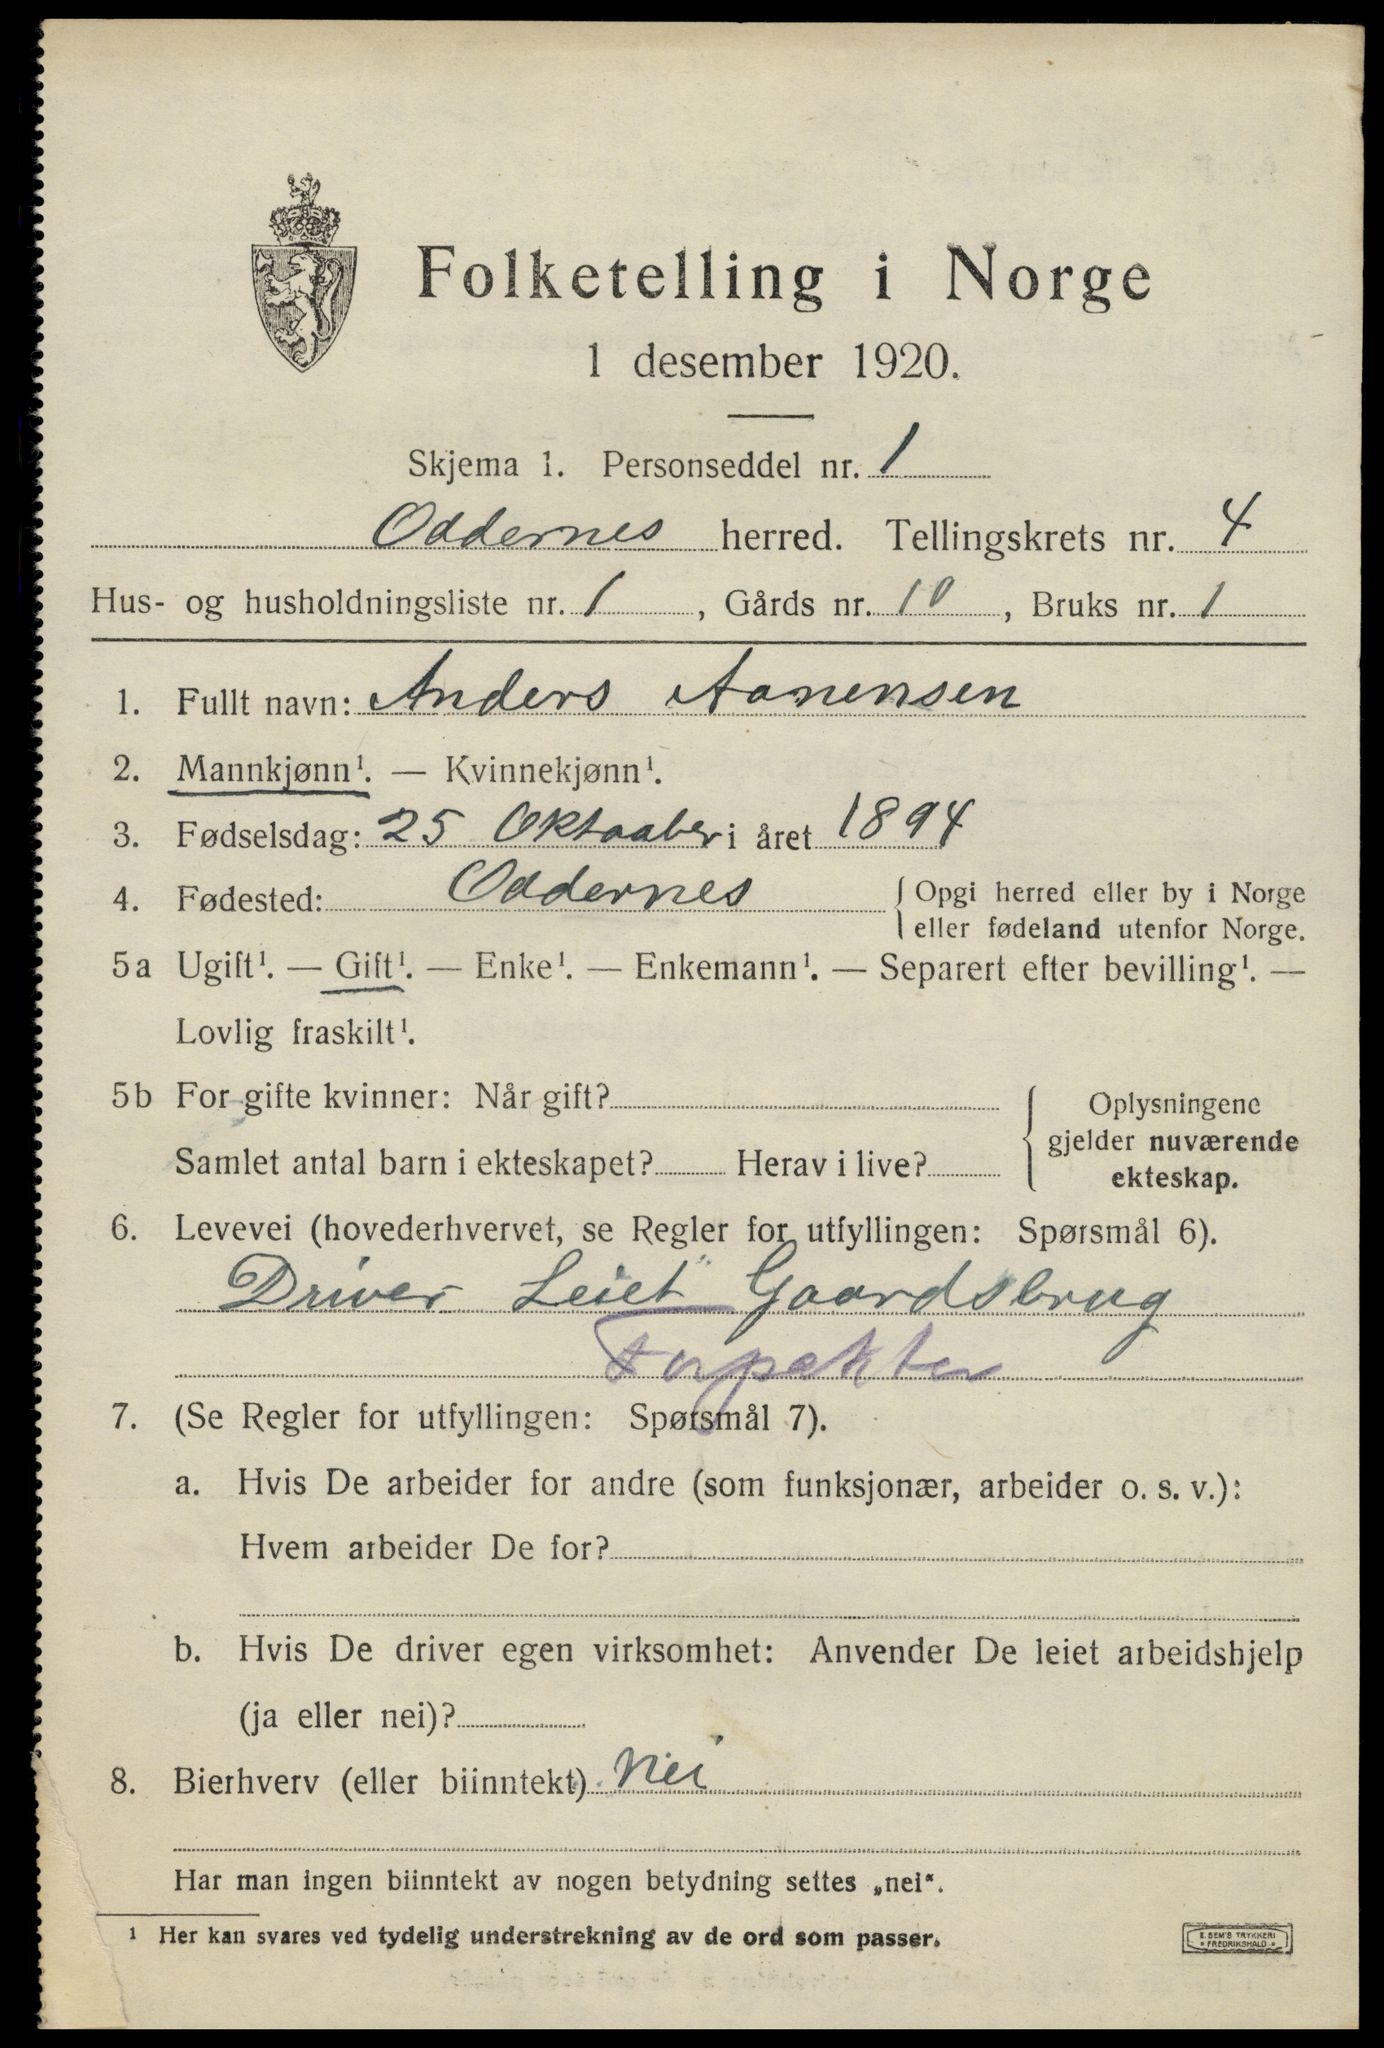 Folketelling i Norge
1 desember 1920.
Skjema 1. Personseddel nr. 1
Oddernes herred. Tellingskrets nr. 4
Hus- og husholdningsliste nr. 1, Gårds nr. 10, Bruks nr. 1
1. Fullt navn: Anders Aanensen
2. Mannkjønn¹. — Kvinnekjønn¹.
3. Fødselsdag: 25 Oktoober i året 1894
4. Fødested: Oddernes { Opgi herred eller by i Norge
eller fødeland utenfor Norge.
5a Ugift¹. — Gift¹. — Enke¹. — Enkemann¹. — Separert efter bevilling¹. —
Lovlig fraskilt¹.
5b For gifte kvinner: Når gift?
Samlet antal barn i ekteskapet? Herav i live?
{ Oplysningene
gjelder nuværende
ekteskap.
6. Levevei (hovederhvervet, se Regler for utfyllingen: Spørsmål 6).
Driver Leiet Gaardsbrug
Forpakter
7. (Se Regler for utfyllingen: Spørsmål 7).
a. Hvis De arbeider for andre (som funksjonær, arbeider o. s. v.):
Hvem arbeider De for?
b. Hvis De driver egen virksomhet: Anvender De leiet arbeidshjelp
(ja eller nei)?
8. Bierhverv (eller biinntekt) Nei
Har man ingen biinntekt av nogen betydning settes „nei".
¹ Her kan svares ved tydelig understrekning av de ord som passer.
E. SEM'S TRYKKERI
FREDRIKSHALD